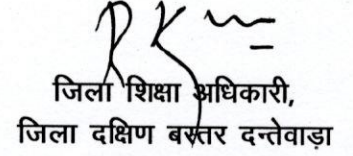 जिला शिक्षा अधिकारी,
जिला दक्षिण बस्तर दन्तेवाड़ा